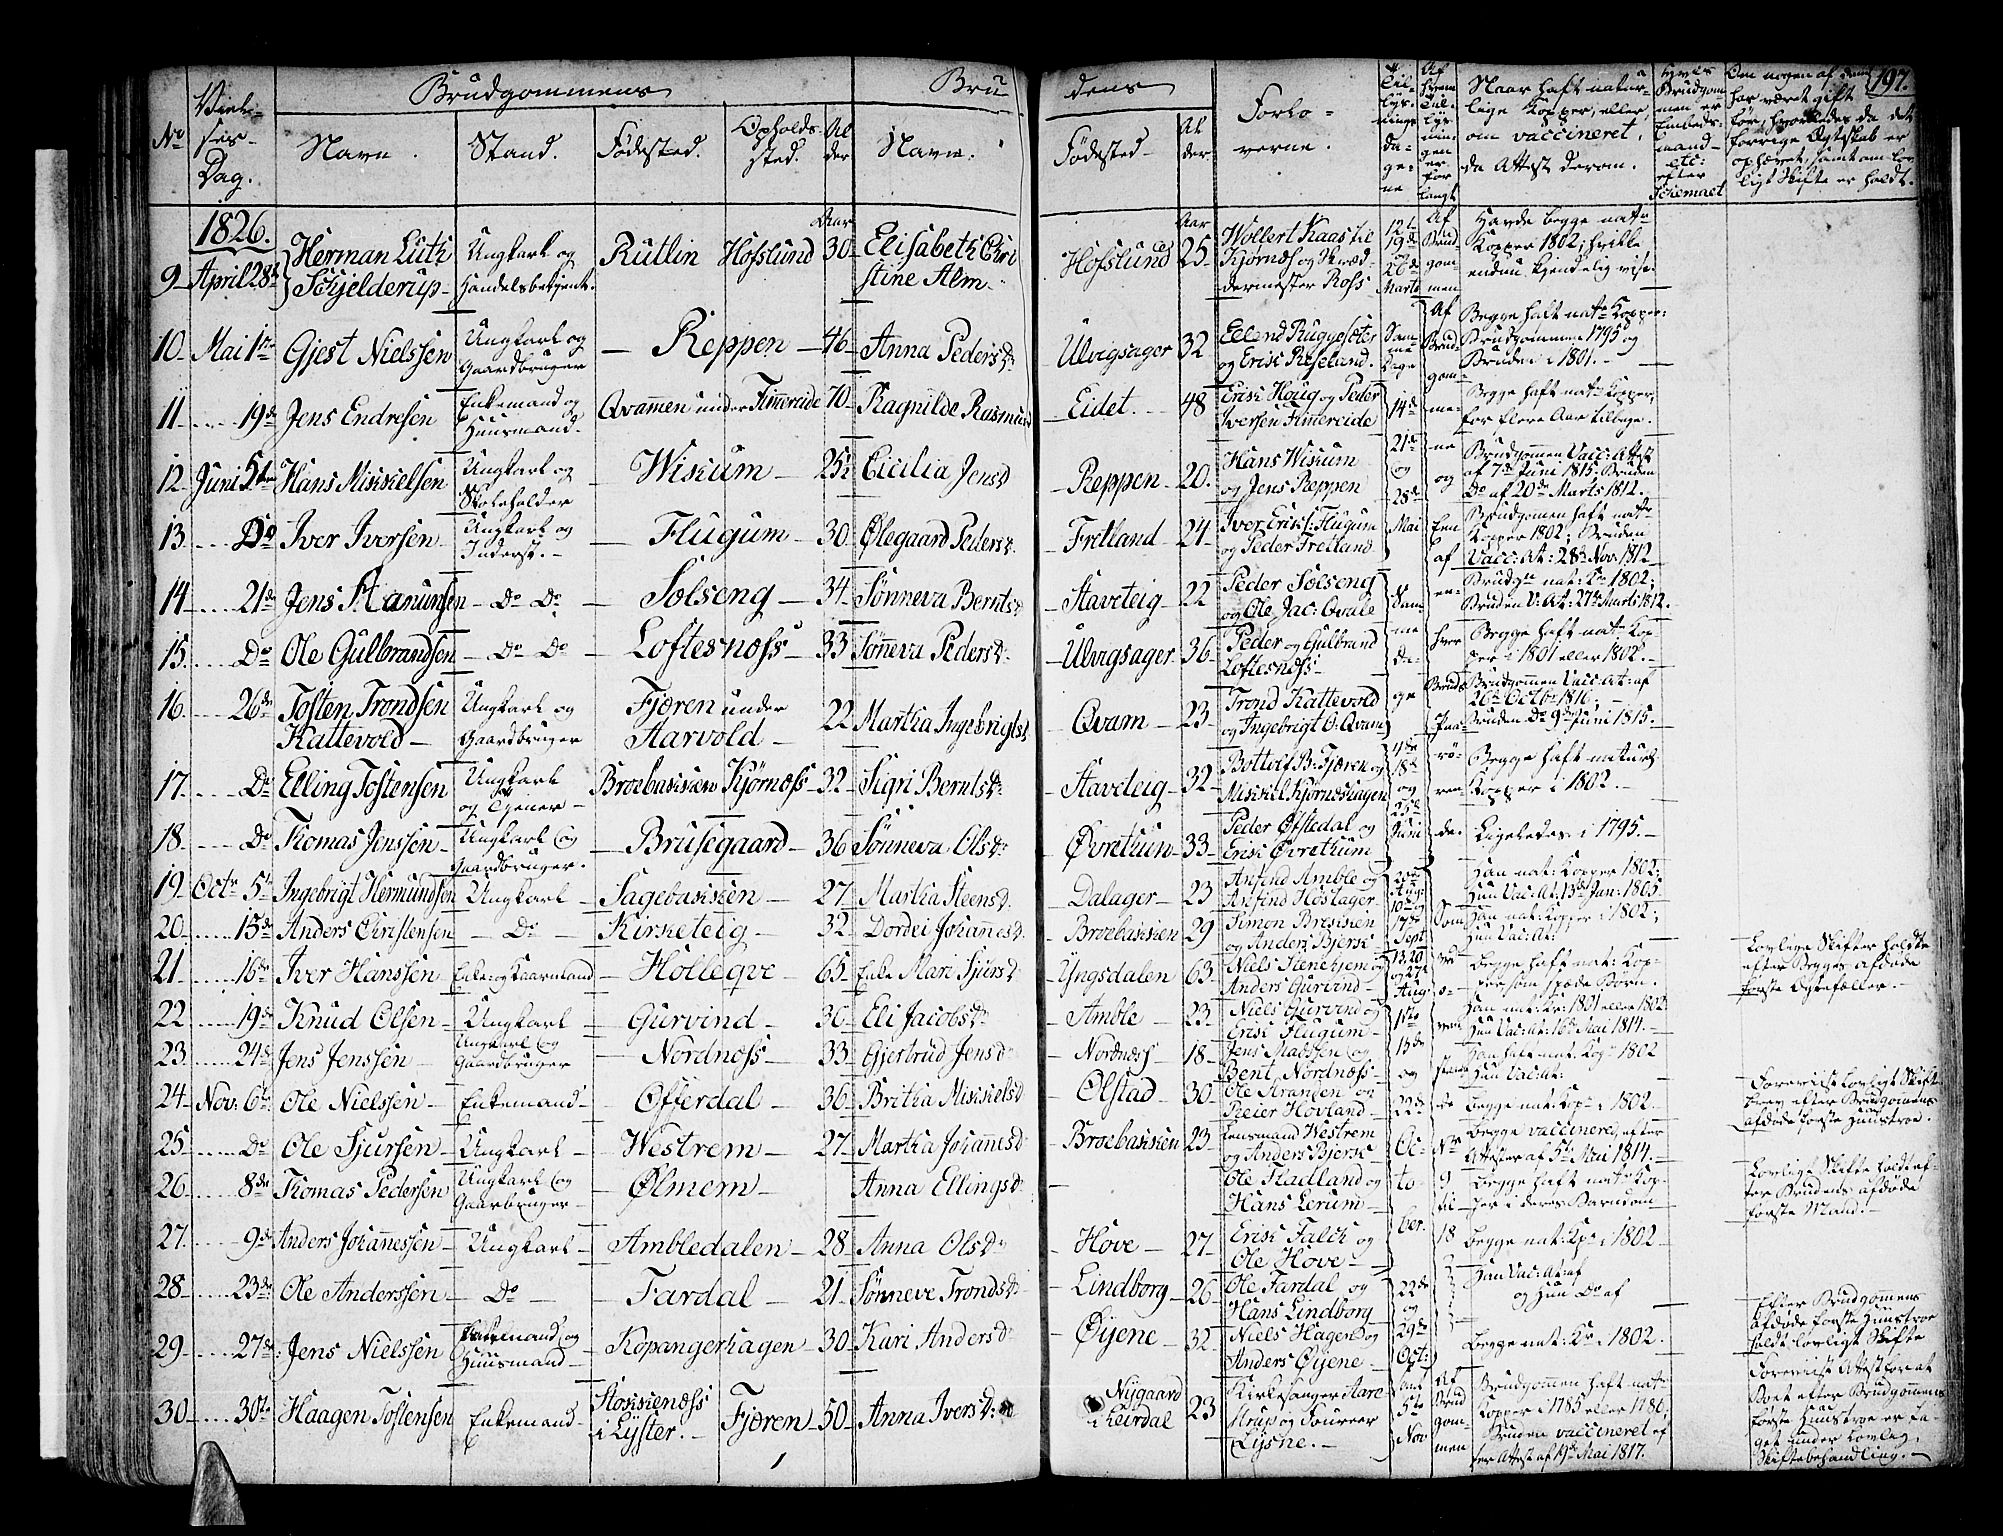 197.
No
Vielsesdag.
Brudgommens
Bru
dens
Navn.
Stand.
Fødested.
Opholdssted.
Alder
Navn.
Fødested
Alder
Forloverne.
Tillysningsdagene
Af hvem Tillysningen er forlangt
Naar haft naturlige Kopper, eller om vaccineret, da Attest derom.
Om nogen af dem har været gift før, hvorledes da det forrige Ægteskab er ophævet, samt om lovligt Skifte er holdt.
1826.
9 April 28de Herman Lüth Schjelderup Ungkarl og Handelsbetjent. Rutlin Hofslund Aar 30 Elisabeth Christine Alm Hofslund Aar 25 Wollert Kaas til Kjørnæs og Skræddermester Ross 12te 19de og 26de Marts Af Brudgommen Havde begge natle Kopper 1802; hvilke endnu kjendelig vise.
10 Mai 1ste Gjest Nielssen Ungkarl og Gaardbruger Reppen 46 Anna Pedersdr Ulvigsager 32 Ellend Ruggesæter og Erik Reseland. Samme Dage Begge haft natle Kopper: Brudgommen i 1795 og Bruden i 1801.
11 19de Jens Endresen Enkemand og Huusmand Qvamen under Fimereide 70 Ragnilde Rasmusd Eidet 48 Erik Houg og Peder Iversen Fimereide 14de Begge haft natle Kopper, for flere Aar tilbage.
12 Juni 5te Hans Mikkelsen Ungkarl og Skoleholder Wikum 25½ Cicilia Jensd Reppen 20. Hans Wikum og Jens Reppen 21de og 28de Brudgomen Vacc: Attest af 7de Juni 1815. Bruden Do af 20de Marts 1812.
13 Do Iver Iversen Ungkarl og Inderst. Flugum 30 Ølegaard Pedersd. Fretland 24 Iver Eriks: Flugum og Peder Fretland Mai Brudgomen haft natle Kopper 1802; Bruden Vacc: At: 28de Nov. 1812
14 21de Jens Hamunsen Do Do Solseng 34 Sønneva Berntsd Stavteig 22 Peder Solseng og Ole Jac: Qvale Brudgn nat: Kr 1802; Bruden V: At: 27de Marts 1812.
15. Do Ole Gulbrandsen Do Do Loftesnæss 33 Sønneva Pedersd. Ulvigsager 36 Peder og Gulbrand Loftesnæss Begge haft natle Kopper i 1801 eller 1802.
16. 26de Tosten Trondsen Kattevold Ungkarl og Gaardbruger Fjæren under Aarvold 22 Martha Ingebrigtsd Qvam 23 Trond Kattevold og Ingebrigt O: Qvam Brudgomen Vacc: At: af 26de Octbr 1816; Bruden Do 9de Juni 1815.
17. Do Elling Tostensen Ungkarl og Tjener Broebakken Kjørnæss 32 Sigri Berntsdr Stavteig 32 Bottolf B: Fjæren og Mikkel Kjørnæshagen 4de 18de og 25de Juni Begge haft naturl Kopper i 1802.
18. Do Thomas Jenssen Ungkarl og Gaardbruger. Brusegaard 36 Sønneva Olsdr Øvrethun 33 Peder Ofstedal og Erik Øvrethum Ligeledes i 1795.
19. Octr 5te Ingebrigt Hermundsen Ungkarl Sagebakken 27 Martha Steensd. Dalager 23 Anfind Amble og Anfind Høstager Han nat: Kopper 1802: Hun Vac: At: 13de Jan: 1805
20 15de Anders Christensen Do Kirketeig 32 Dordei Johanesd. Broebakken 29 Simon Brekken og Anders Bjerk 17de Sept Han nat: Kopper i 1802; Hun Vac: At:
21 16de Iver Hanssen Enke- og Kaarmand Hölleqve 65 Enke Mari Sjursdr Yngsdalen 63 Niels Stenehjem og Anders Gurvind 13. 20 og 27de Aug Begge haft nat: Kopper som spæde Børn. Lovlige Skifter holdte efter Begges afdøde første Ægtefæller.
22 19de Knud Olsen Ungkarl Gurvind 30 Eli Jacobsdr Amble 23 Niels Gurvind og Erik Flugum 1ste Han nat: Kr: 1801 eller 1802 Hun Vac: At: 16de Mai 1814.
23. 24de Jens Jenssen Ungkarl og Gaardbruger Nordnæss 33 Gjertrud Jensdr Nordnæss 18 Jens Madssen og Bent Nordnæss 15de og Han haft nat: Kopr 1802 Hun Vac: At:
24. Nov: 6te Ole Nielssen Enkemand Offerdal 36 Britha Mikkelsd Olstad 30 Ole Aranden og Peder Hovland 22de begge nat: Kopr i 1802. Foreviist lovligt Skiftebrev efter Brudgomens afdøde første Hustroe.
25. Do Ole Sjursen Ungkarl Westrem 27 Martha Johannesdr Broebakken 23 Lensmand Westrem og Anders Bjerk begge vaccinered, efter Attester af 5te Mai 1814.
26. 8de Thomas Pedersen Ungkarl og Gaarbruger Ølmem Anna Ellingsdr Ole Stadland og Hans Lerum begge haft natle Kopper i deres Barndom Lovligt Skifte holdt efter Brudens afdøde første Mand.
27. 9de Anders Johannessen Ungkarl Ambledalen 28 Anna Olsdr Hove 27 Erik Falch og Ole Hove October. begge nat: Kpr i 1802
28. 23de Ole Anderssen Do Fardal 21 Sønneve Trondsdr Lindborg 26 Ole Fardal og Hans Lindborg 22de og Han Vac: At: af og Hun Do af
29. 27de Jens Nielssen Enkemand og Huusmand Kopangerhagen 30 Kari Andersdr Øyene 32 Niels Hagen og Anders Øyene 29de Oct: Begge nat: Kr i 1802. Efter Brudgomens afdøde første Hustroe holdt lovligt Skifte
30 30te Haagen Tostensen Enkemand Stokkenæss i Lyster. Fjæren 50 Anna Iversdr: Nygaard i Leirdal 23 Kirkesanger Aarestrup og Foureer Lysne. 5te Nov Af Brudgommen Brudgommen haft natle Kopper i 1785 eller 1786; Bruden vaccineret efter Attest af 19de Mai 1817. Foreviist Attest for at Boet efter Brudgommens første Hustroe er taget under lovlig Skiftebehandling.